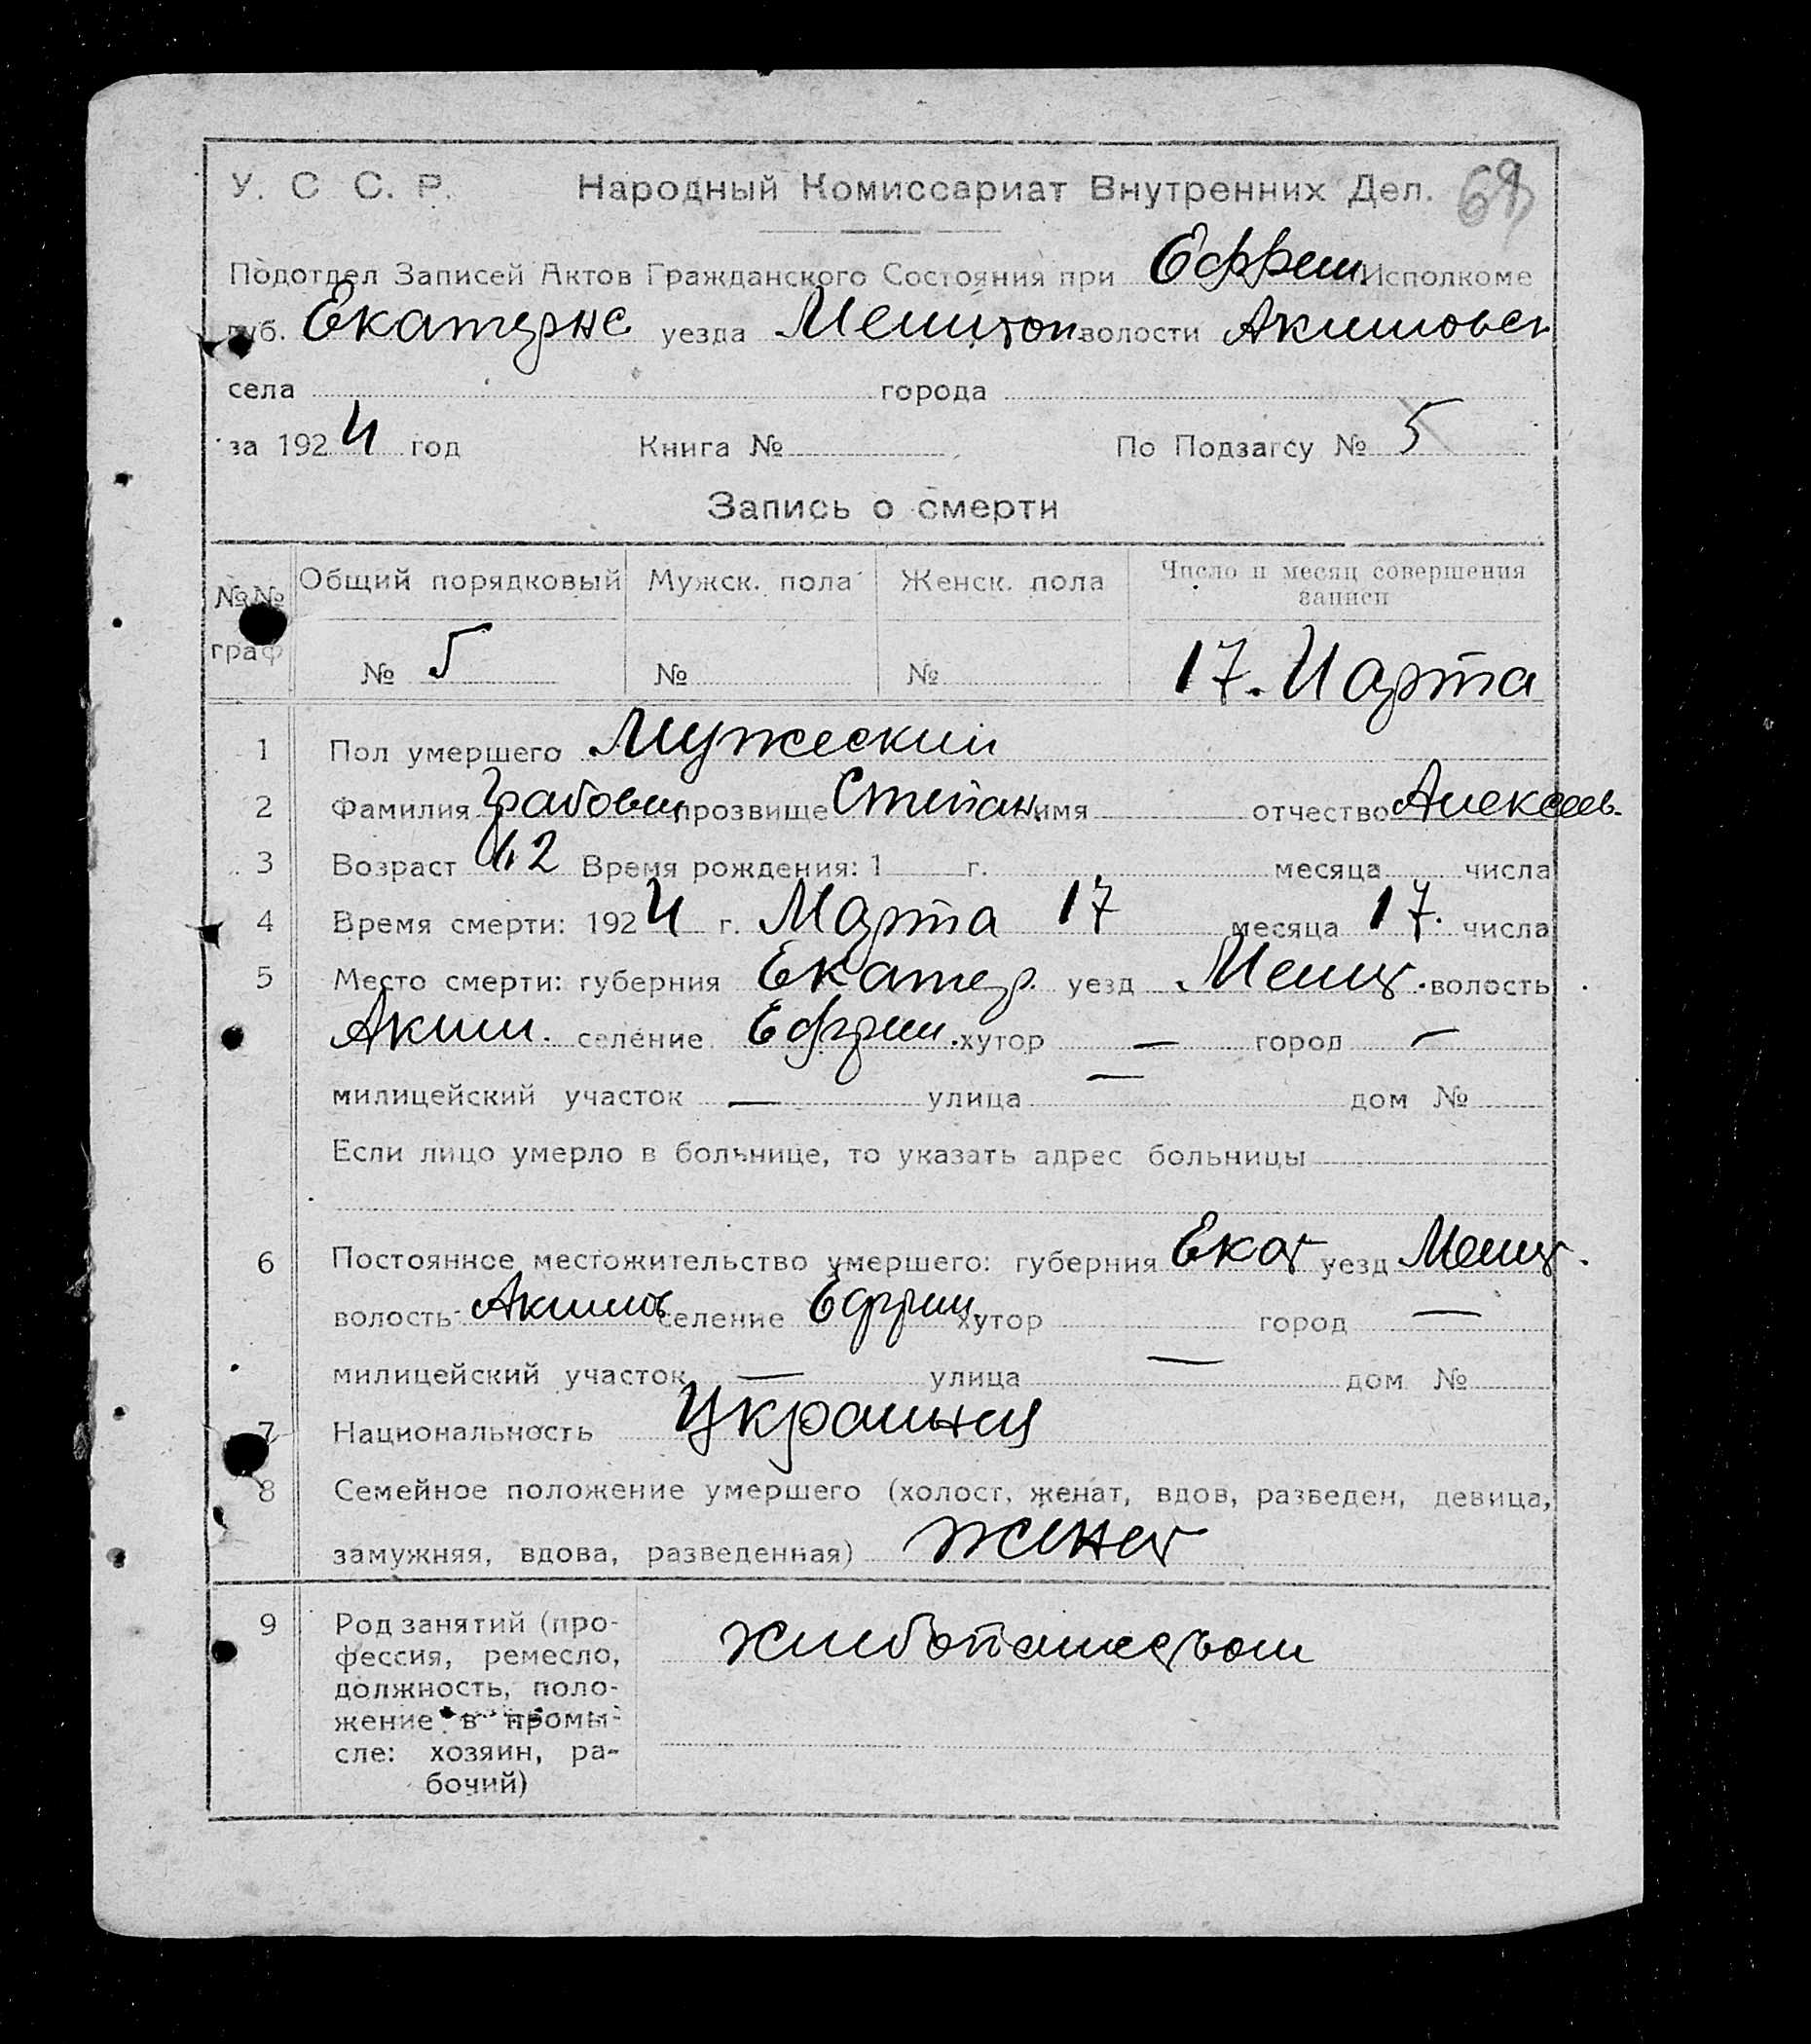 У. С С. Р. Народный Комиссариат Внутренних Дел. 69
Подотдел Записей Актов Гражданского Состояния при Ефрем. Исполкоме
губ. Екатерис уезда Мелитоп волости Акимовск
села города
за 1924 год Книга № По Подзагсу № 5
Запись о смерти
№№ граф Общий порядковый Мужск. пола Женск. пола Число и месяц совершения записи
№ 5 № № 17. Марта
1 Пол умершего Мужеский
2 Фамилия прозвище Степан имя отчество Алексеев.
3 Возраст 42 Время рождения: 1 г. месяца числа
4 Время смерти: 1924 г. Марта 17 месяца 17. числа
5 Место смерти: губерния Екатер. уезд Мелит. волость
Аким. селение Ефрем. хутор — город —
милицейский участок — улица — дом №
Если лицо умерло в больнице, то указать адрес больницы
6 Постоянное местожительство умершего: губерния Екат уезд Мелит.
волость Акимов селение Ефрем хутор город —
милицейский участок — улица — дом №
7 Национальность
8 Семейное положение умершего (холост, женат, вдов, разведен, девица,
замужняя, вдова, разведенная) женат
9 Род занятий (про-
фессия, ремесло, хлибопашеством
должность, поло-
жение в промы-
сле: хозяин, ра-
бочий)